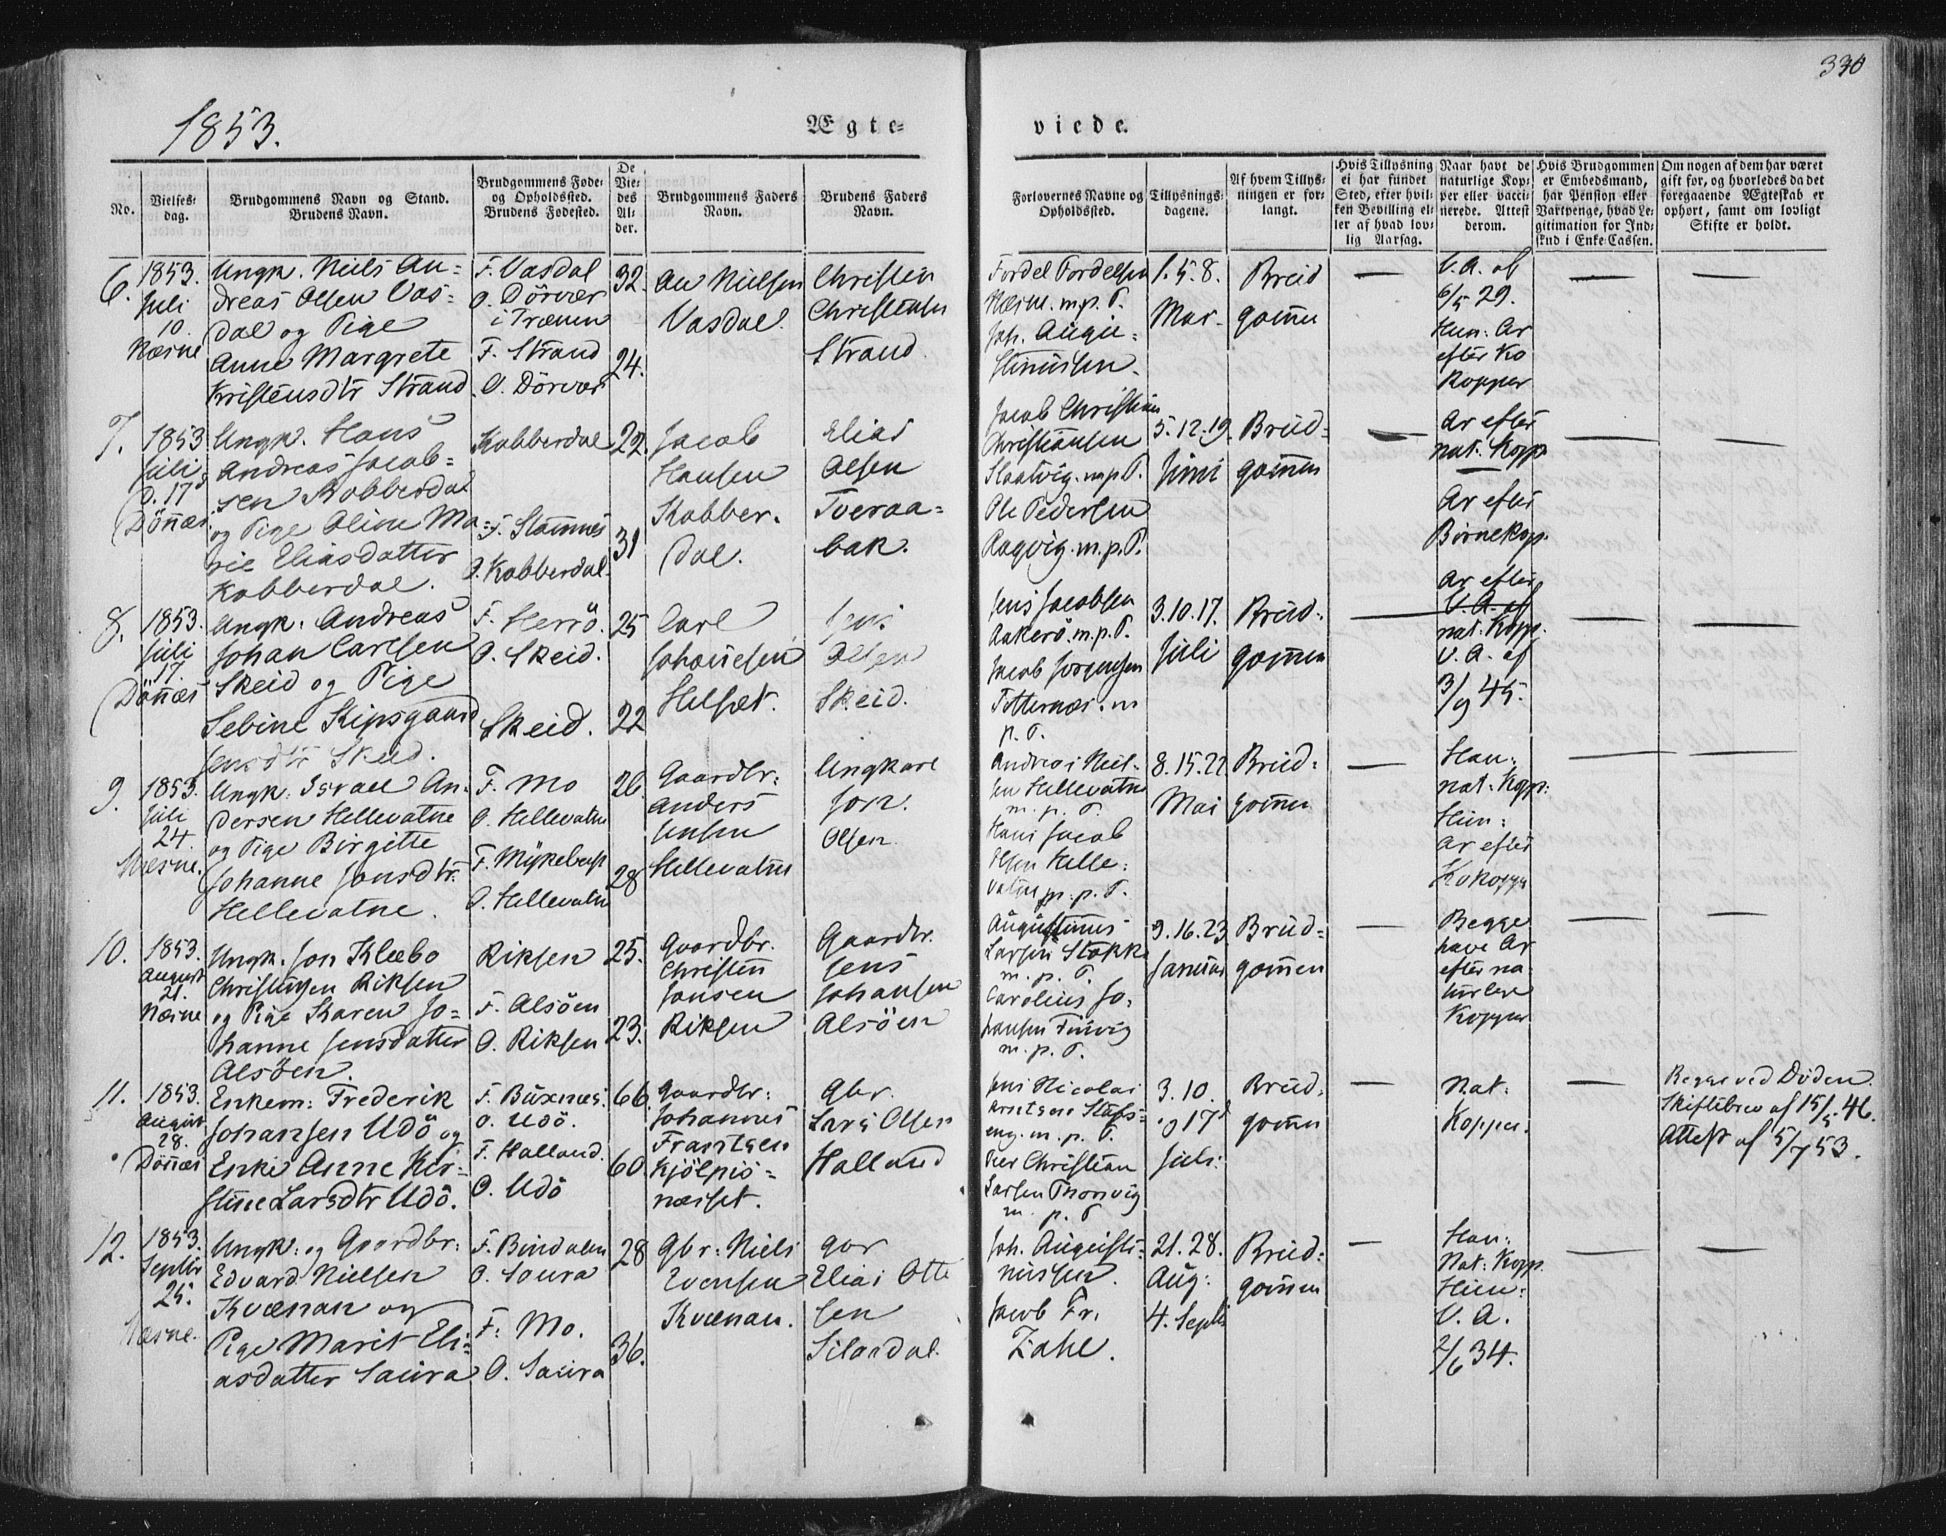 330
1853.
Ægte=
viede.
No.
Vielses-
dag.
Brudgommens Navn og Stand.
Brudens Navn.
Brudgommens Føde-
og Opholdssted.
Brudens Fødested.
De
Vie-
des
Al-
der.
Brudgommens Faders
Navn.
Brudens Faders
Navn.
Forlovernes Navne og
Opholdssted.
Tillysnings-
dagene.
Af hvem Tillys-
ningen er for-
langt.
Hvis Tillysning
ei har fundet
Sted, efter hvil-
ken Bevilling el-
ler af hvad lov-
lig Aarsag.
Naar havt de
naturlige Kop-
per eller vacci-
nerede. Attest
derom.
Hvis Brudgommen
er Embedsmand,
har Pension eller
Vartpenge, hvad Le-
gitimation for Ind-
skud i Enke-Cassen.
Om nogen af dem har været
gift før, og hvorledes da det
foregaaende Ægteskab er
ophørt, samt om lovligt
Skifte er holdt.
6.
1853.
Juli
10.
Næsne
Ungk. Niels An=
dreas Olsen Vas=
dal og Pige
Anne Margrete
Kristensdtr Strand
F. Vasdal
O. Dörvær
i Trænen
F. Strand
O. Dörvær
32.
24.
Nielsen
Vasdal.
Christen
Christensen
Strand.
Fordel Fordelsen
Næsne. m.p.P.
Joh. Augu=
stinussen.
1. 5. 8.
Mar.
Brud
gomen
—
V. A. af
6/5 29.
Hun: Ar
efter Ko
kopper
—
—
7.
1853
Juli
D. 17
Dönnæs
Ungk. Hans
Andreas Jacob=
sen Kobberdal
og Pige Oline Ma=
rie Eliasdatter
Kobberdal.
Kobberdal
F. Stamnes
O. Kobberdal.
22.
31
Jacob
Hansen
Kobber=
dal.
Elias
Olsen
Tveraa=
bak.
Jacob Christian
Christiansen
Slaatvig. m.p.P.
Ole Pedersen
Ragvig. m.p.P.
5. 12. 19.
Juni
Brud=
gomen
—
Ar efter
nat. Kopp.
Ar efter
Börnekop.
—
—
8.
1853.
Juli
17.
Dönnæs
Ungk. Andreas
Johan Carlsen
Skeid og Pige
Sebine Kipsgaard
Jensdtr Skeid.
F. Herrö.
O. Skeid.
Skeid.
25
22
Carl
Johansen
Helset.
Jens
Olsen
Skeid.
Jens Jacobsen
Aakerö. m.p.P.
Jacob Jorgensen
Totternes. m.
p. P.
3. 10. 17.
Juli
Brud=
gomen
—
Ar efter
V. A. af
nat. Kopp.
V. A. af
3/9 45.
—
—
9.
1853.
Juli
24.
Næsne.
Ungk. Israel An=
dersen Hellevatne
og Pige Birgitte
Johanne Jonsdtr.
Hellevatne.
F. Mo
O. Hellevatne
F. Mykebust
O. Hellevatne
26.
28
Gaardbr:
Anders
Jensen
Hellevatne
Ungkarl
Jon.
Olsen.
Andreas Niel=
sen Hellevatne
m. p. P.
Hans Jacob
Olsen Helle=
vatne m. p. P.
8. 15. 22
Mai
Brud=
gomen
—
Han:
nat. Kopp:
Hun:
Ar efter
Kokopper
—
—
10.
1853.
August
21.
Næsne
Ungk. Jon Klæbo
Christensen Riksen
og Pige Karen Jo=
hanne Jensdatter
Alsöen.
Riksen
F. Alsöen
O. Riksen
25.
23.
Gaardbr.
Christen
Jonsen
Riksen
Gaardbr.
Jens
Johansen
Alsöen
Augustinus
Larsen Stokke
m. p. P.
Carolius Jo=
hansen Finvig
m. p. P.
9. 16. 23
Januar
Brud=
gomen
—
Begge
have Ar
efter na=
turlige
Kopper
—
—
11.
1853.
August
28.
Dönnæs
Enkem: Frederik
Johansen Udö og
Enke Anne Kir=
stine Larsdtr Udö.
F. Buxnes.
O. Udö.
F. Halland.
O. Udö
66.
60.
Gaardbr:
Johannes
Frantsen
Kjölpiö=
næsset.
Gbr.
Lars Olsen
Halland
Jens Nicolai
Arntsen Stafs=
eng. m. p. P.
Peer Christian
Larsen Thorsvig
m. p. P
3. 10.
og 17
Juli.
Brud=
gomen
—
Nat:
Kopper.
—
Begge ved Döden.
Skiftebrev af 15/5 46.
Attest af 5/7 53.
12.
1853.
Septbr
25.
Næsne.
Ungk: og Gaardbr:
Edvard Nielsen
Kvænan og
Pige Marit Eli=
asdatter Saura
F. Bindalen
O. Saura
F. Mo.
O. Saura
28
36.
Gbr: Niels
Evensen
Kvænan.
Gbr
Elias Otte
sen
Silardal.
Joh. Augusti=
nussen.
Jacob Fr.
Zahl.
21. 28.
Aug:
4. Septb
Brud=
gomen
—
Han:
Nat: Kopp.
Hun:
V. A.
2/6 34.
—
—